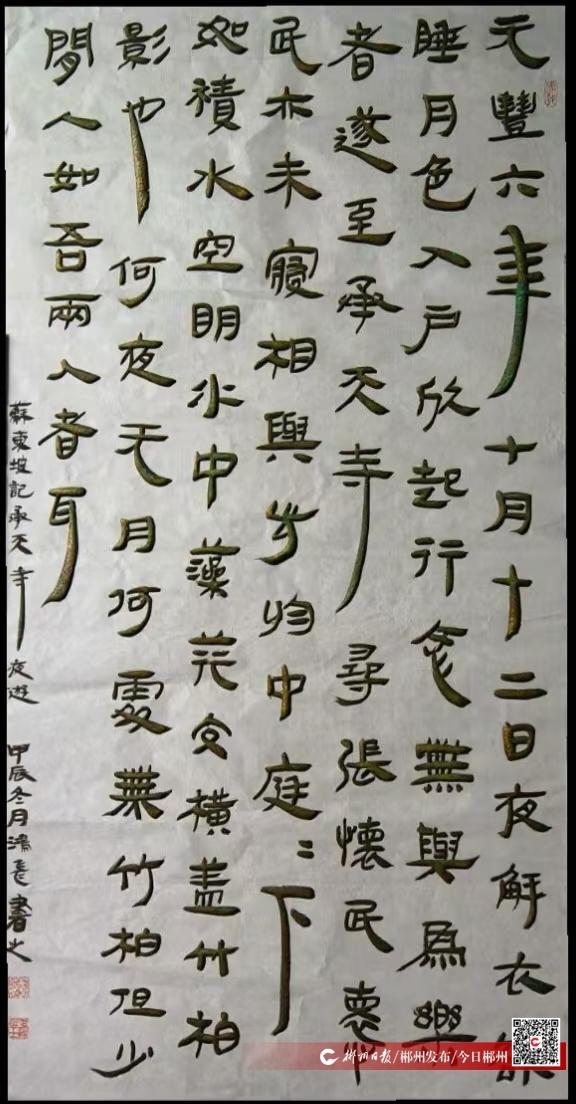 元豐六年十月十二日夜解衣欲
睡月色入戶欣起行念無與爲樂
者遂至承天寺尋張懷民懷
民亦未寢相與步於中庭〻下
如積水空明水中藻荇交橫盖竹柏
影也何夜无月何處無竹柏但少
閒人如吾兩人者耳
蘇東坡記承天寺夜遊 甲辰冬月鴻長書之
郴州日报/郴州发布/今日郴州